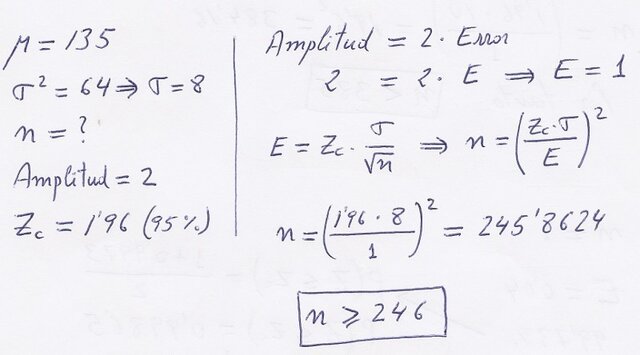 μ = 135
σ² = 64 ⇒ σ = 8
n = ?
Amplitud = 2
Zc = 1'96 (95%)
Amplitud = 2 · Error
2 = 2 · E ⇒ E = 1
E = Zc · σ/√n ⇒ n = (Zc·σ/E)²
n = (1'96 · 8/1)² = 245'8624
n ⩾ 246